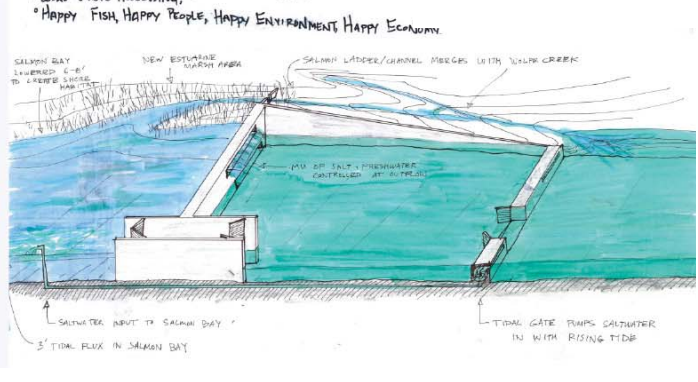 ° HAPPY FISH, HAPPY PEOPLE, HAPPY ENVIRONMENT, HAPPY ECONOMY.
SALMON BAY
LOWERED 6-8'
TO CREATE SHORE
HABITAT
NEW ESTUARINE
MARSH AREA
SALMON LADDER/CHANNEL MERGES WITH WOLFE CREEK
MIX OF SALT & FRESHWATER
CONTROLLED AT
SALTWATER INPUT TO SALMON BAY
3' TIDAL FLUX IN SALMON BAY
TIDAL GATE PUMPS SALTWATER
IN WITH RISING TIDE